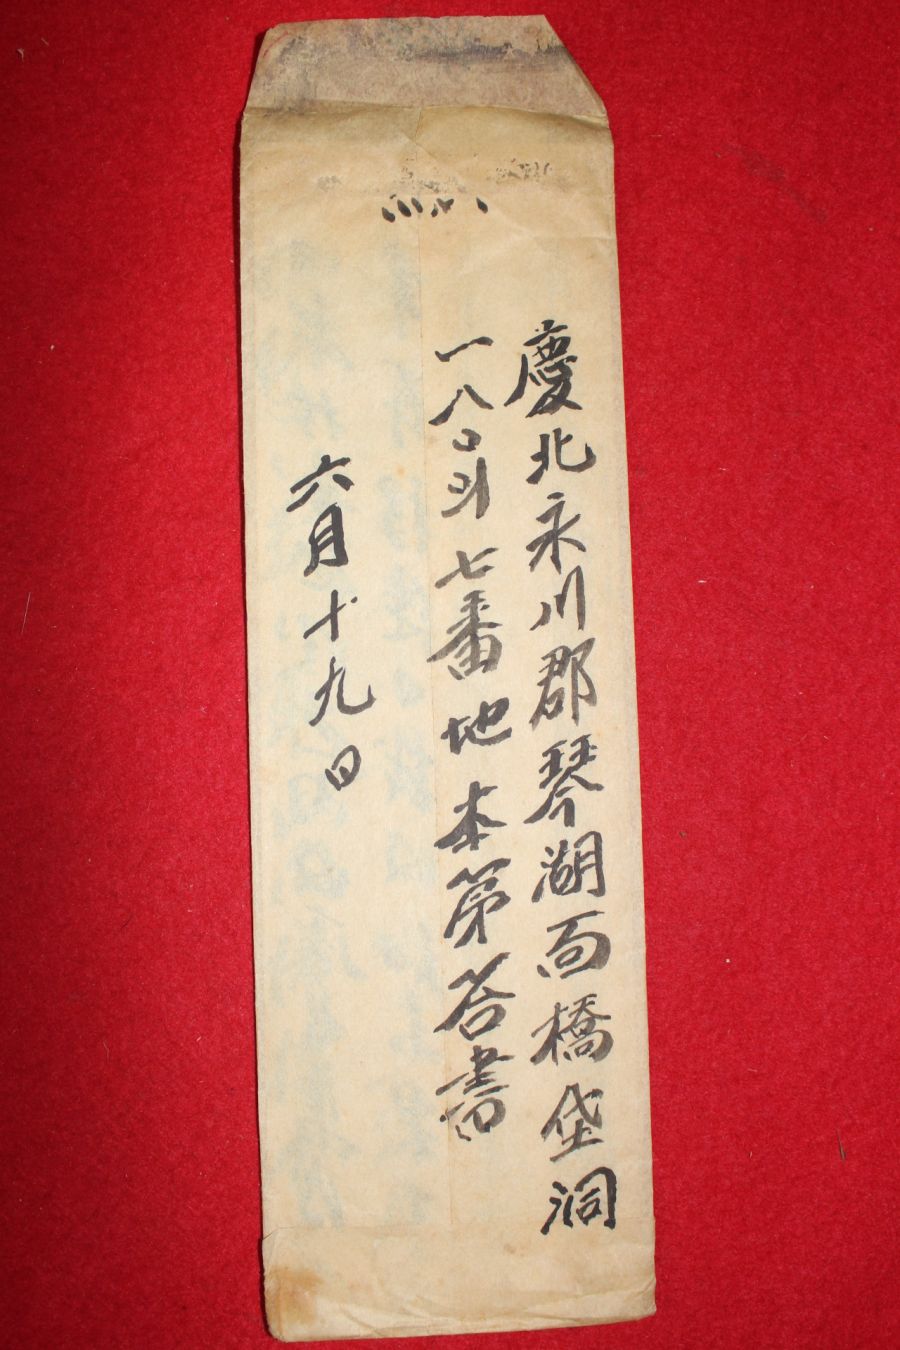 慶北永川郡琴湖面橋垈洞
一八〇斗七番地本第答書
六月十九日